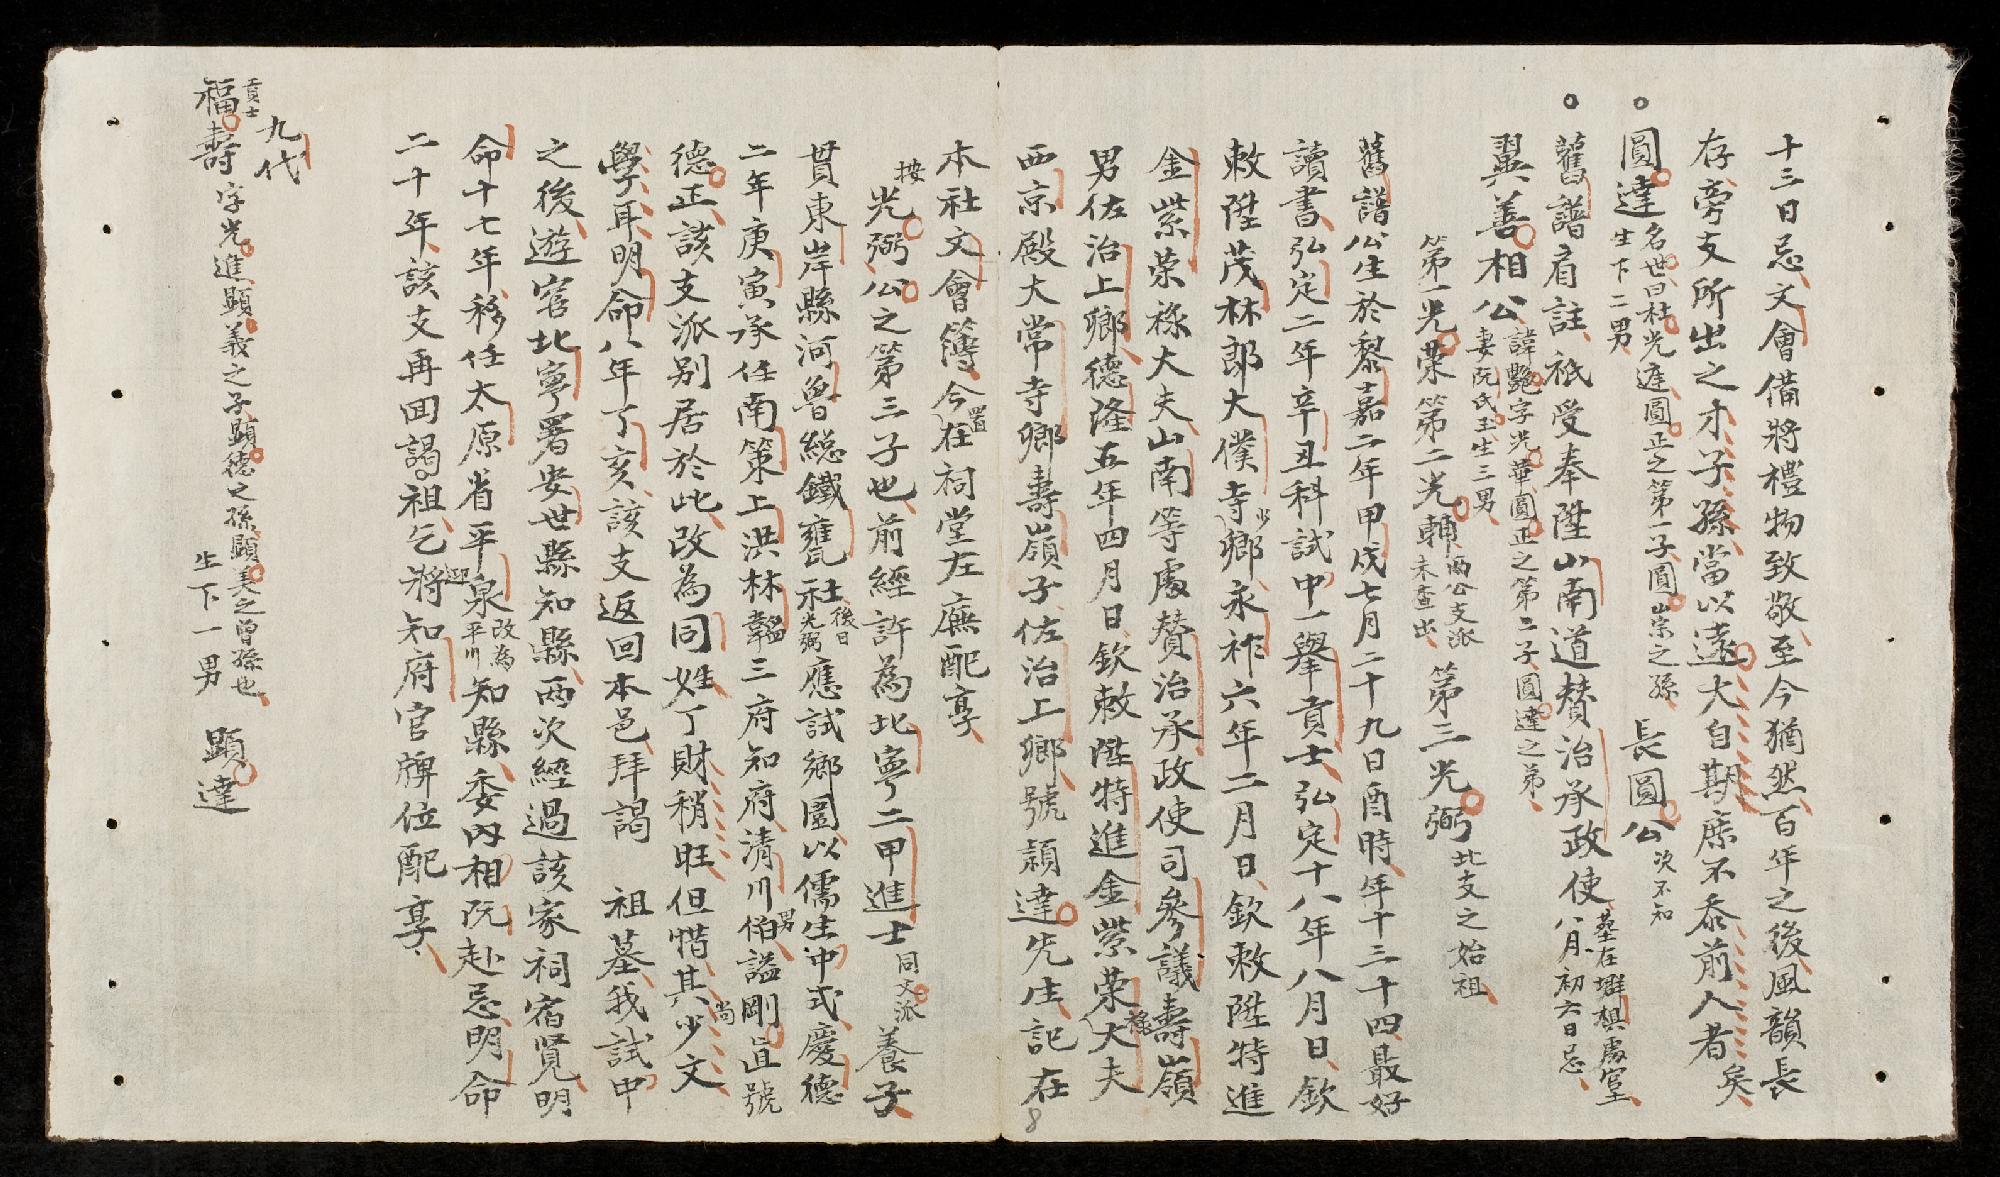 十三日忌文會備將禮物致敬至今猶然百年之後風韻長
存旁支所出之才子孫當以遠大自期庶不忝前人者矣
圓達名世曰杜光遑圓正之第一子圓宗之孫 長圓公次不知
生下二男
舊譜有註祇受奉陞山南道贊治承政使墓在堆棋處官土
八月初六日忌
翼善相公諱艷字光華圓正之第二子圓達之弟
妻阮氏玉生三男
第一光榮第二光輔兩公支派未查出 第三光弼北支之始祖
舊譜公生於黎嘉二年甲戌七月二十九日酉時年十三十四最好
讀書弘定二年辛丑科試中一舉貢士弘定十八年八月日欽
敕陞茂林郎大僕寺少鄉永祚六年二月日欽敕陞特進
金紫榮祿大夫山南等處贊治承政使司參議壽嶺
男佐治上鄉德隆五年四月日欽敕陞特進金紫榮祿大夫
西京殿大常寺鄉壽嶺子佐治上鄉號穎達先生記在
本社文會簿今置在祠堂左廡配享
按光弼公之第三子也前經許為北寧二甲進士同文派養子
貫東岸縣河魯總鐵甕社後曰光弼應試鄉圍以儒生中式慶德
二年庚寅承任南策上洪林韜三府知府清川男伯謚剛直號尚
德正該支派别居於此改為同姓丁財稍旺但惜其少文
學耳明命八年丁亥該支返回本邑拜謁 祖墓我試中
之後遊宦北寧署安世縣知縣兩次經過該家祠宿覽明
命十七年移任太原省平泉改為平川知縣委內相阮赴迎忌明命
二十年該支再回謁祖乞將知府官牌位配享
九代
貢士
福壽字光進顯義之子顯德之孫顯美之曾孫也
生下一男 顯達
8